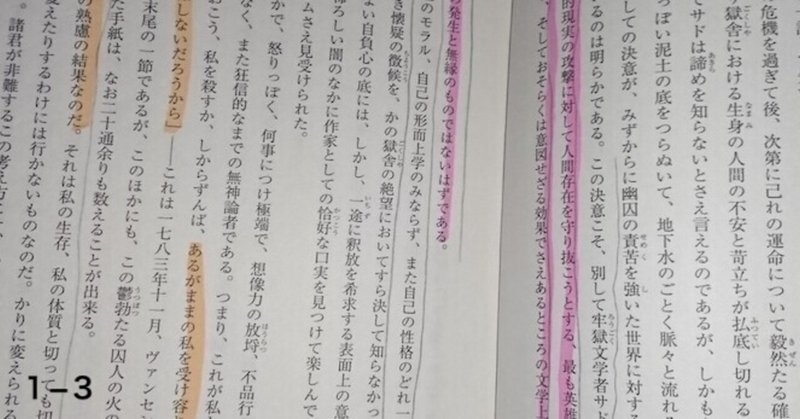 の危機を過ぎて後、次第に己れの運命について毅然たる確
獄舎における生身の人間の不安と苛立ちが払底し切れる
てサドは諦めを知らないとさえ言えるのであるが、しかも
っぽい泥土の底をつらぬいて、地下水のごとく脈々と流れ
しての決意が、みずからに幽囚の責苦を強いた世界に対する
るのは明らかである。この決意こそ、別して牢獄文学者サド
的現実の攻撃に対して人間存在を守り抜こうとする、最も英雄
、そしておそらくは意図せざる効果でさえあるところの文学上
の発生と無縁のものではないはずである。
のモラル、自己の形而上学のみならず、また自己の性格のどれ一
き懐疑の徴候を、かの獄舎の絶望においてすら決して知らなかっ
ない自負心の底には、しかし、一途に釈放を希求する表面上の意
部ろしい闇のなかに作家としての恰好な口実を見つけて楽しんで
ムさえ見受けられた。
かで、怒りっぽく、何事につけ極端で、想像力の放埒、不品行
なく、また狂信的なまでの無神論者である。つまり、これが私
おこう、私を殺すか、しからずんば、あるがままの私を受け容
しないだろうから」――これは一七八三年十一月、ヴァンセ
末尾の一節であるが、このほかにも、この鬱勃たる囚人の火の
た手紙は、なお二十通余りも数えることが出来る。
の熟慮の結果なのだ。それは私の生存、私の体質と切っても切
変えたりするわけには行かないものなのだ。かりに変えられる
。諸君が非難するこの考え方に
1–3